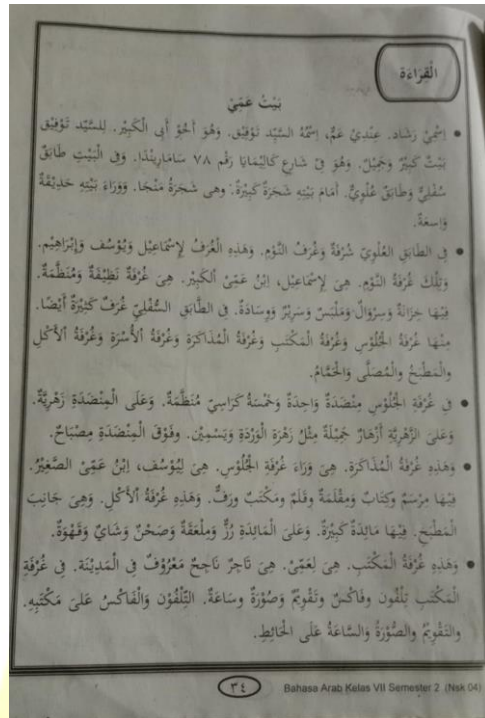 الْقِرَاءَة
بَيْتُ عَمِّيْ
• اِسْمِيْ رَشَاد. عِنْدِيْ عَمٌّ، اِسْمُهُ السَّيِّد تَوْفِيْق. وَهُوَ أَخُوْ أَبِى الْكَبِيْر. لِلسَّيِّد تَوْفِيْق
بَيْتٌ كَبِيْرٌ وَجَمِيْلٌ. وَهُوَ فِىْ شَارِعِ كَالِيْمَايَا رَقْم ٧٨ سَامَارِيْنْدَا. وَفِى الْبَيْتِ طَابَقٌ
سُفْلِيٌّ وَطَابَقٌ عُلْوِيٌّ. أَمَامَ بَيْتِهِ شَجَرَةٌ كَبِيْرَةٌ. وهى شَجَرَةُ مَنْجَا. وَوَرَاءَ بَيْتِهِ حَدِيْقَةٌ
وَاسِعَةٌ.
• فِى الطَّابَقِ العُلْوِيِّ شُرْفَةٌ وَغُرَفُ النَّوْمِ. وَهَذِهِ الْغُرَفُ لِإِسْمَاعِيْل وَيُوْسُف وَإِبْرَاهِيْم.
وَتِلْكَ غُرْفَةُ النَّوْمِ. هِىَ لِإِسْمَاعِيْل، اِبْنُ عَمِّىْ الْكَبِيْر. هِىَ غُرْفَةٌ نَظِيْفَةٌ وَمُنَظَّمَةٌ.
فِيْهَا خِزَانَةٌ وَسِرْوَالٌ وَمَلْبَسٌ وَسَرِيْرٌ وَوِسَادَةٌ. فِى الطَّابَقِ السُّفْلِيِّ غُرَفٌ كَثِيْرَةٌ أَيْضًا.
مِنْهَا غُرْفَةُ الْجُلُوْسِ وَغُرْفَةُ الْمَكْتَبِ وَغُرْفَةُ الْمُذَاكَرَةِ وَغُرْفَةُ الْأُسْرَةِ وَغُرْفَةُ الْأَكْلِ
والْمَطْبَخُ وَالْمُصَلَّى وَالْحَمَّامُ.
• فِى غُرْفَةِ الْجُلُوْسِ مِنْضَدَةٌ وَاحِدَةٌ وَخَمْسَةُ كَرَاسِيّ مُنَظَّمَةٌ. وَعَلَى الْمِنْضَدَةِ زَهْرِيَّةٌ.
وَعَلىَ الزَّهْرِيَّةِ أَزْهَارٌ جَمِيْلَةٌ مِثْلُ زَهْرَةِ الْوَرْدَةِ وَيَسْمِيْن. وفَوْقَ الْمِنْضَدَةِ مِصْبَاحٌ.
• وَهَذِهِ غُرْفَةُ الْمُذَاكَرَةِ. هِىَ وَرَاءَ غُرْفَةِ الْجُلُوْسِ. هِىَ لِيُوْسُف، اِبْنُ عَمِّىْ الصَّغِيْرُ.
فِيْهَا مِرْسَمٌ وَكِتَابٌ وَمِقْلَمَةٌ وقَلَمٌ ومَكْتَبٌ ورَفٌّ. وَهَذِهِ غُرْفَةُ الْأَكْلِ. وَهِىَ جَانِبَ
الْمَطْبَخِ. فِيْهَا مَائِدَةٌ كَبِيْرَةٌ. وَعَلىَ الْمَائِدَةِ رُزٌّ وَمِلْعَقَةٌ وَصَحْنٌ وَشَايٌ وَقَهْوَةٌ.
• وَهَذِهِ غُرْفَةُ الْمَكْتَبِ. هِىَ لِعَمِّىْ. هِىَ تَاجِرٌ نَاجِحٌ مَعْرُوْفٌ فِى الْمَدِيْنَة. فِى غُرْفَةِ
الْمَكْتَبِ تِلْفُون وفَاكْسٌ وتَقْوِيْمٌ وَصُوْرَةٌ وسَاعَةٌ. التِّلْفُوْن وَالْفَاكْسُ عَلىَ مَكْتَبِهِ.
والتَّقْوِيْمُ والصُّوْرَةُ وَالسَّاعَةُ عَلَى الْحَائِطِ.
٣٤ Bahasa Arab Kelas VII Semester 2 (Nsk 04)